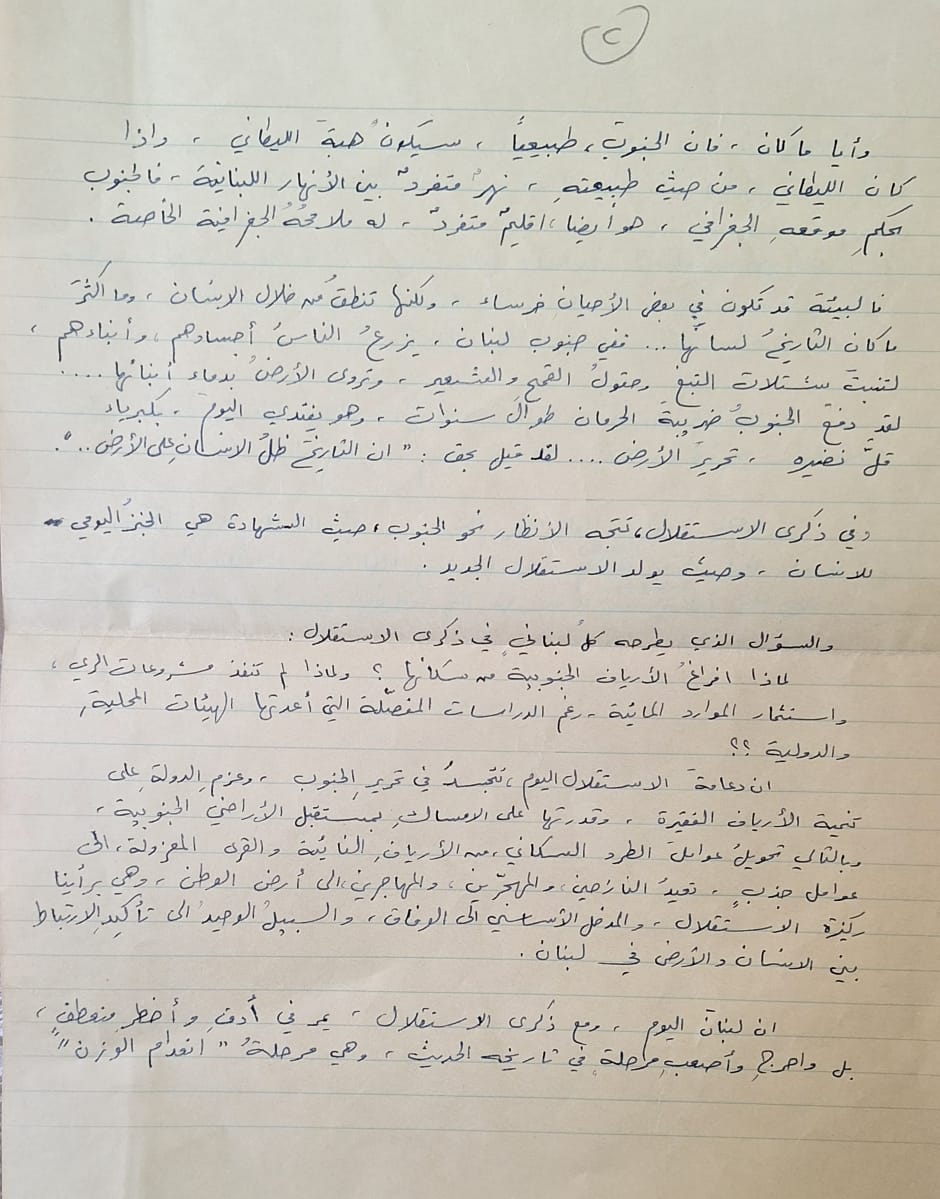 ٢
وأيا ما كان ، فان الجنوبَ ، طبيعياً ، سيكونُ هبةَ الليطاني ، واذا
كان الليطاني ، من حيث طبيعتهِ ، نهرٌ متفردٌ بين الأنهار اللبنانية ، فالجنوب
بحكمِ موقعهِ الجغرافي ، هو أيضا ، اقليمٌ متفردٌ ، له ملامحُهُ الجغرافية الخاصة .
فالبيئة قد تكون في بعض الأحيان خرساء ، ولكنها تنطقُ من خلال الانسان ، وما اكثرَ
ما كان التاريخُ لسانُها ... ففي جنوب لبنان ، يزرعُ الناسُ أجسادهم ، وأبناءهم ،
لتنبتَ شتلات التبغ وحقولُ القمح والشعير ، وتروى الأرضُ بدماء أبنائها ....
لقد دفعَ الجنوبُ ضريبة الحرمان طوالَ سنوات ، وهو يفتدي اليوم ، بكبرياء
قلَّ نضيره ، تحريرَ الأرض .... لقد قيل بحق : " ان التاريخَ ظلُ الانسانِ على الأرض .. " .
وفي ذكرى الاستقلال ، تتجه الأنظار نحو الجنوب ، حيث الشهادة هي الخبزُ اليومي
للانسان ، وحيث يولد الاستقلال الجديد .
والسؤال الذي يطرحه كلُ لبنانيٍ في ذكرى الاستقلال :
لماذا افراغُ الأرياف الجنوبية من سكانها ؟ ولماذا لم تنفذ مشروعات الري ،
واستثمار الموارد المائية ، رغم الدراسات المفصّلة التي أعدتها الهيئات المحليةِ
والدولية ؟؟
ان دعامةَ الاستقلال اليوم ، تتجسدُ في تحريرِ الجنوب ، وعزمِ الدولةِ على
تنمية الأرياف الفقيرة ، وقدرتها على الامساكِ بمستقبل الأراضي الجنوبية ،
وبالتالي تحويلُ عواملَ الطرد السكاني ، من الأريافِ النائية والقرى المعزولة ، الى
عوامل جذبٍ ، تعيدُ النازحين ، والمهجّرين ، والمهاجرين ، الى أرض الوطن ، وهي برأينا
ركيزة الاستقلال ، والمدخل الأساسي الى الوفاق ، والسبيلُ الوحيدُ الى تأكيدِ الارتباط
بين الانسان والأرض في لبنان .
ان لبنانَ اليوم ، ومع ذكرى الاستقلال ، يمر في أدقِ وأخطرِ منعطفٍ ،
بل واحرجِ وأصعبِ مرحلةٍ في تاريخه الحديث ، وهي مرحلةُ " انعدام الوزن "